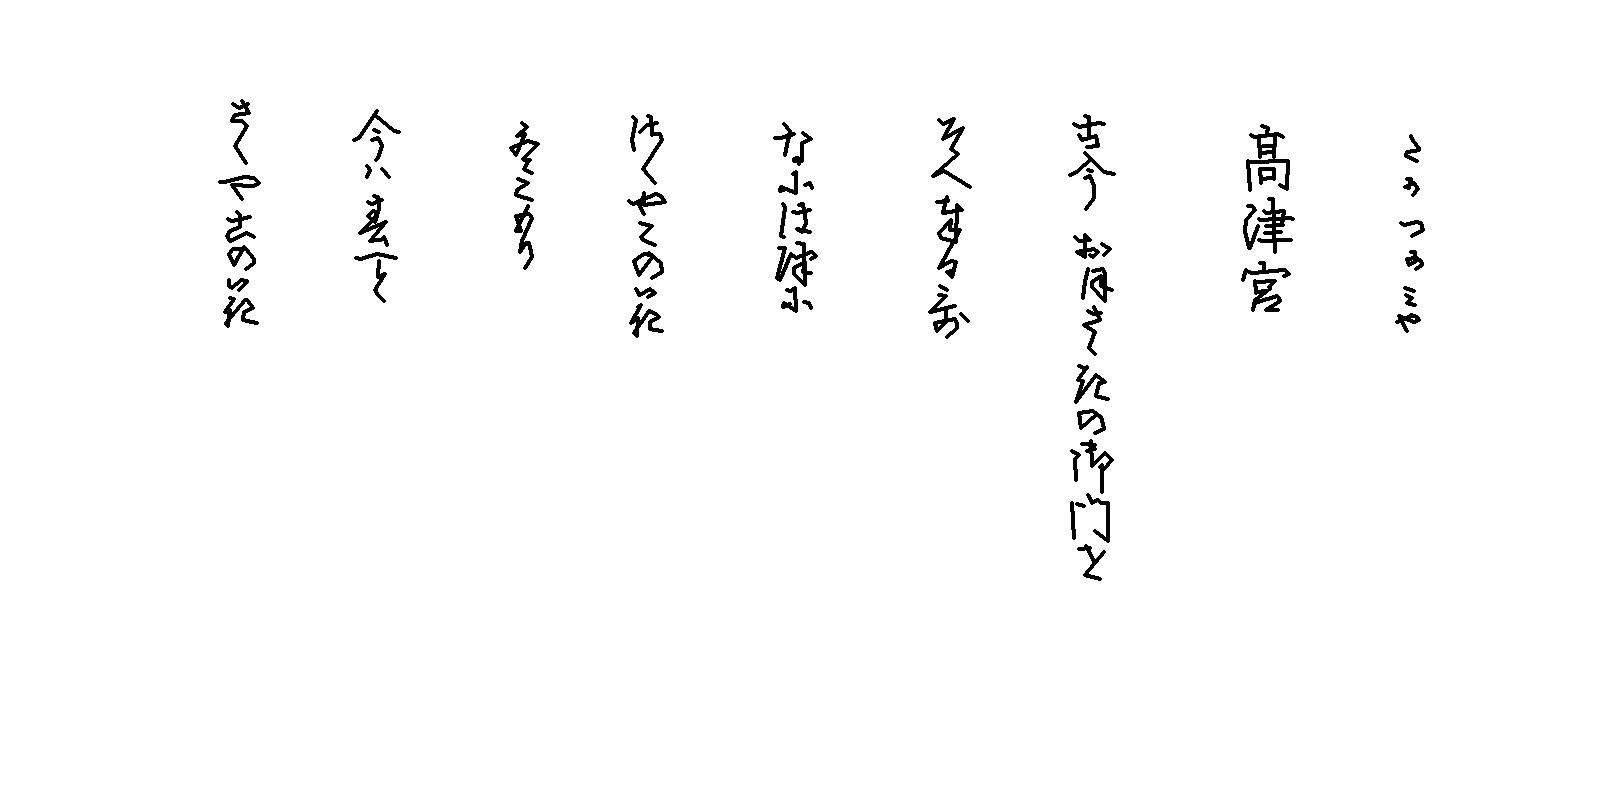 たかつのみや
高津宮
古今 おほさゝきの御門を
そへ奉る哥
なには津に
さくやこのはな
冬こもり
今ハ春へと
さくやこのはな